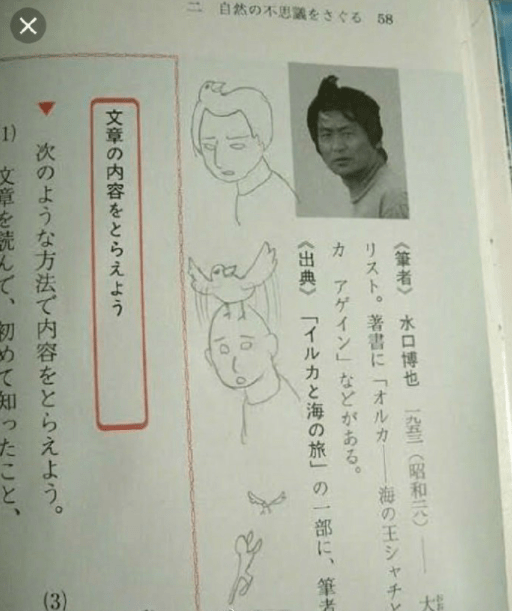 二 自然の不思議をさぐる 58
《筆者》 水口博也 一九五三(昭和二八)——
リスト。著書に「オルカ——海の王シャチと
カ アゲイン」などがある。
《出典》 「イルカと海の旅」の一部に、筆者
文章の内容をとらえよう
▼ 次のような方法で内容をとらえよう。
1) 文章を読んで、初めて知ったこと、
(3)